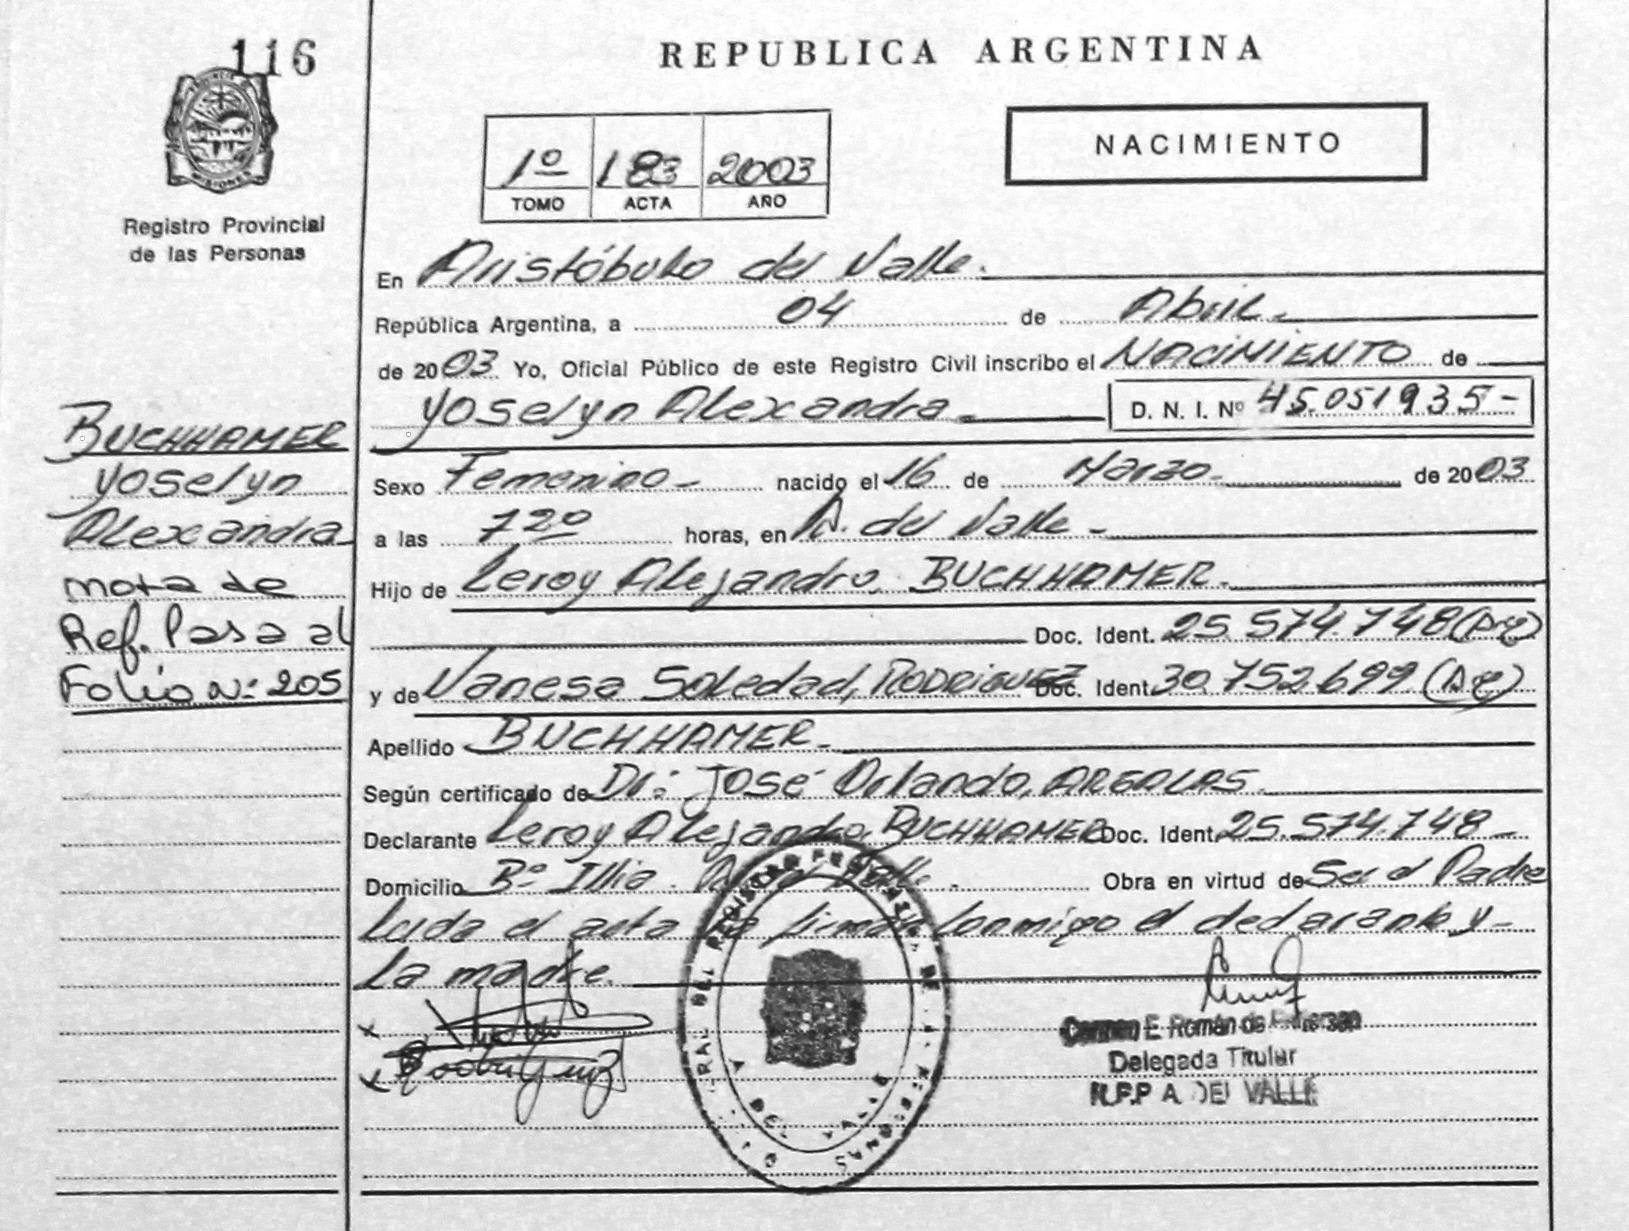 116
REPUBLICA ARGENTINA
MISIONES
Registro Provincial
de las Personas
1º 183 2003
TOMO ACTA AÑO
NACIMIENTO
En Aristóbulo del Valle.
República Argentina, a 04 de Abril.
de 2003 Yo, Oficial Público de este Registro Civil inscribo el NACIMIENTO de
Yoselyn Alexandra. D. N. I. Nº 45.051935-
BUCHHAMER
Yoselyn
Alexandra
nota de
Ref. Pasa al
Folio Nº 205
Sexo Femenino - nacido el 16 de Marzo. de 2003
a las 7 20 horas, en A. del Valle -
Hijo de Leroy Alejandro, BUCHHAMER.
Doc. Ident. 25.574.748 (Arg)
y de Vanesa Soledad, RODRIGUEZ Doc. Ident. 30.752.699 (Arg)
Apellido BUCHHAMER -
Según certificado de Dr: José Orlando,
Declarante Leroy Alejandro, BUCHHAMER Doc. Ident. 25.574.748 -
Domicilio Bº Illia. A. del Valle. Obra en virtud de Ser el Padre
Leida el acta la firman conmigo el declarante y -
La madre.
Rodriguez
Carmen E. Román de
Delegada Titular
R.P.P A. DEL VALLE
A DEL VALLE